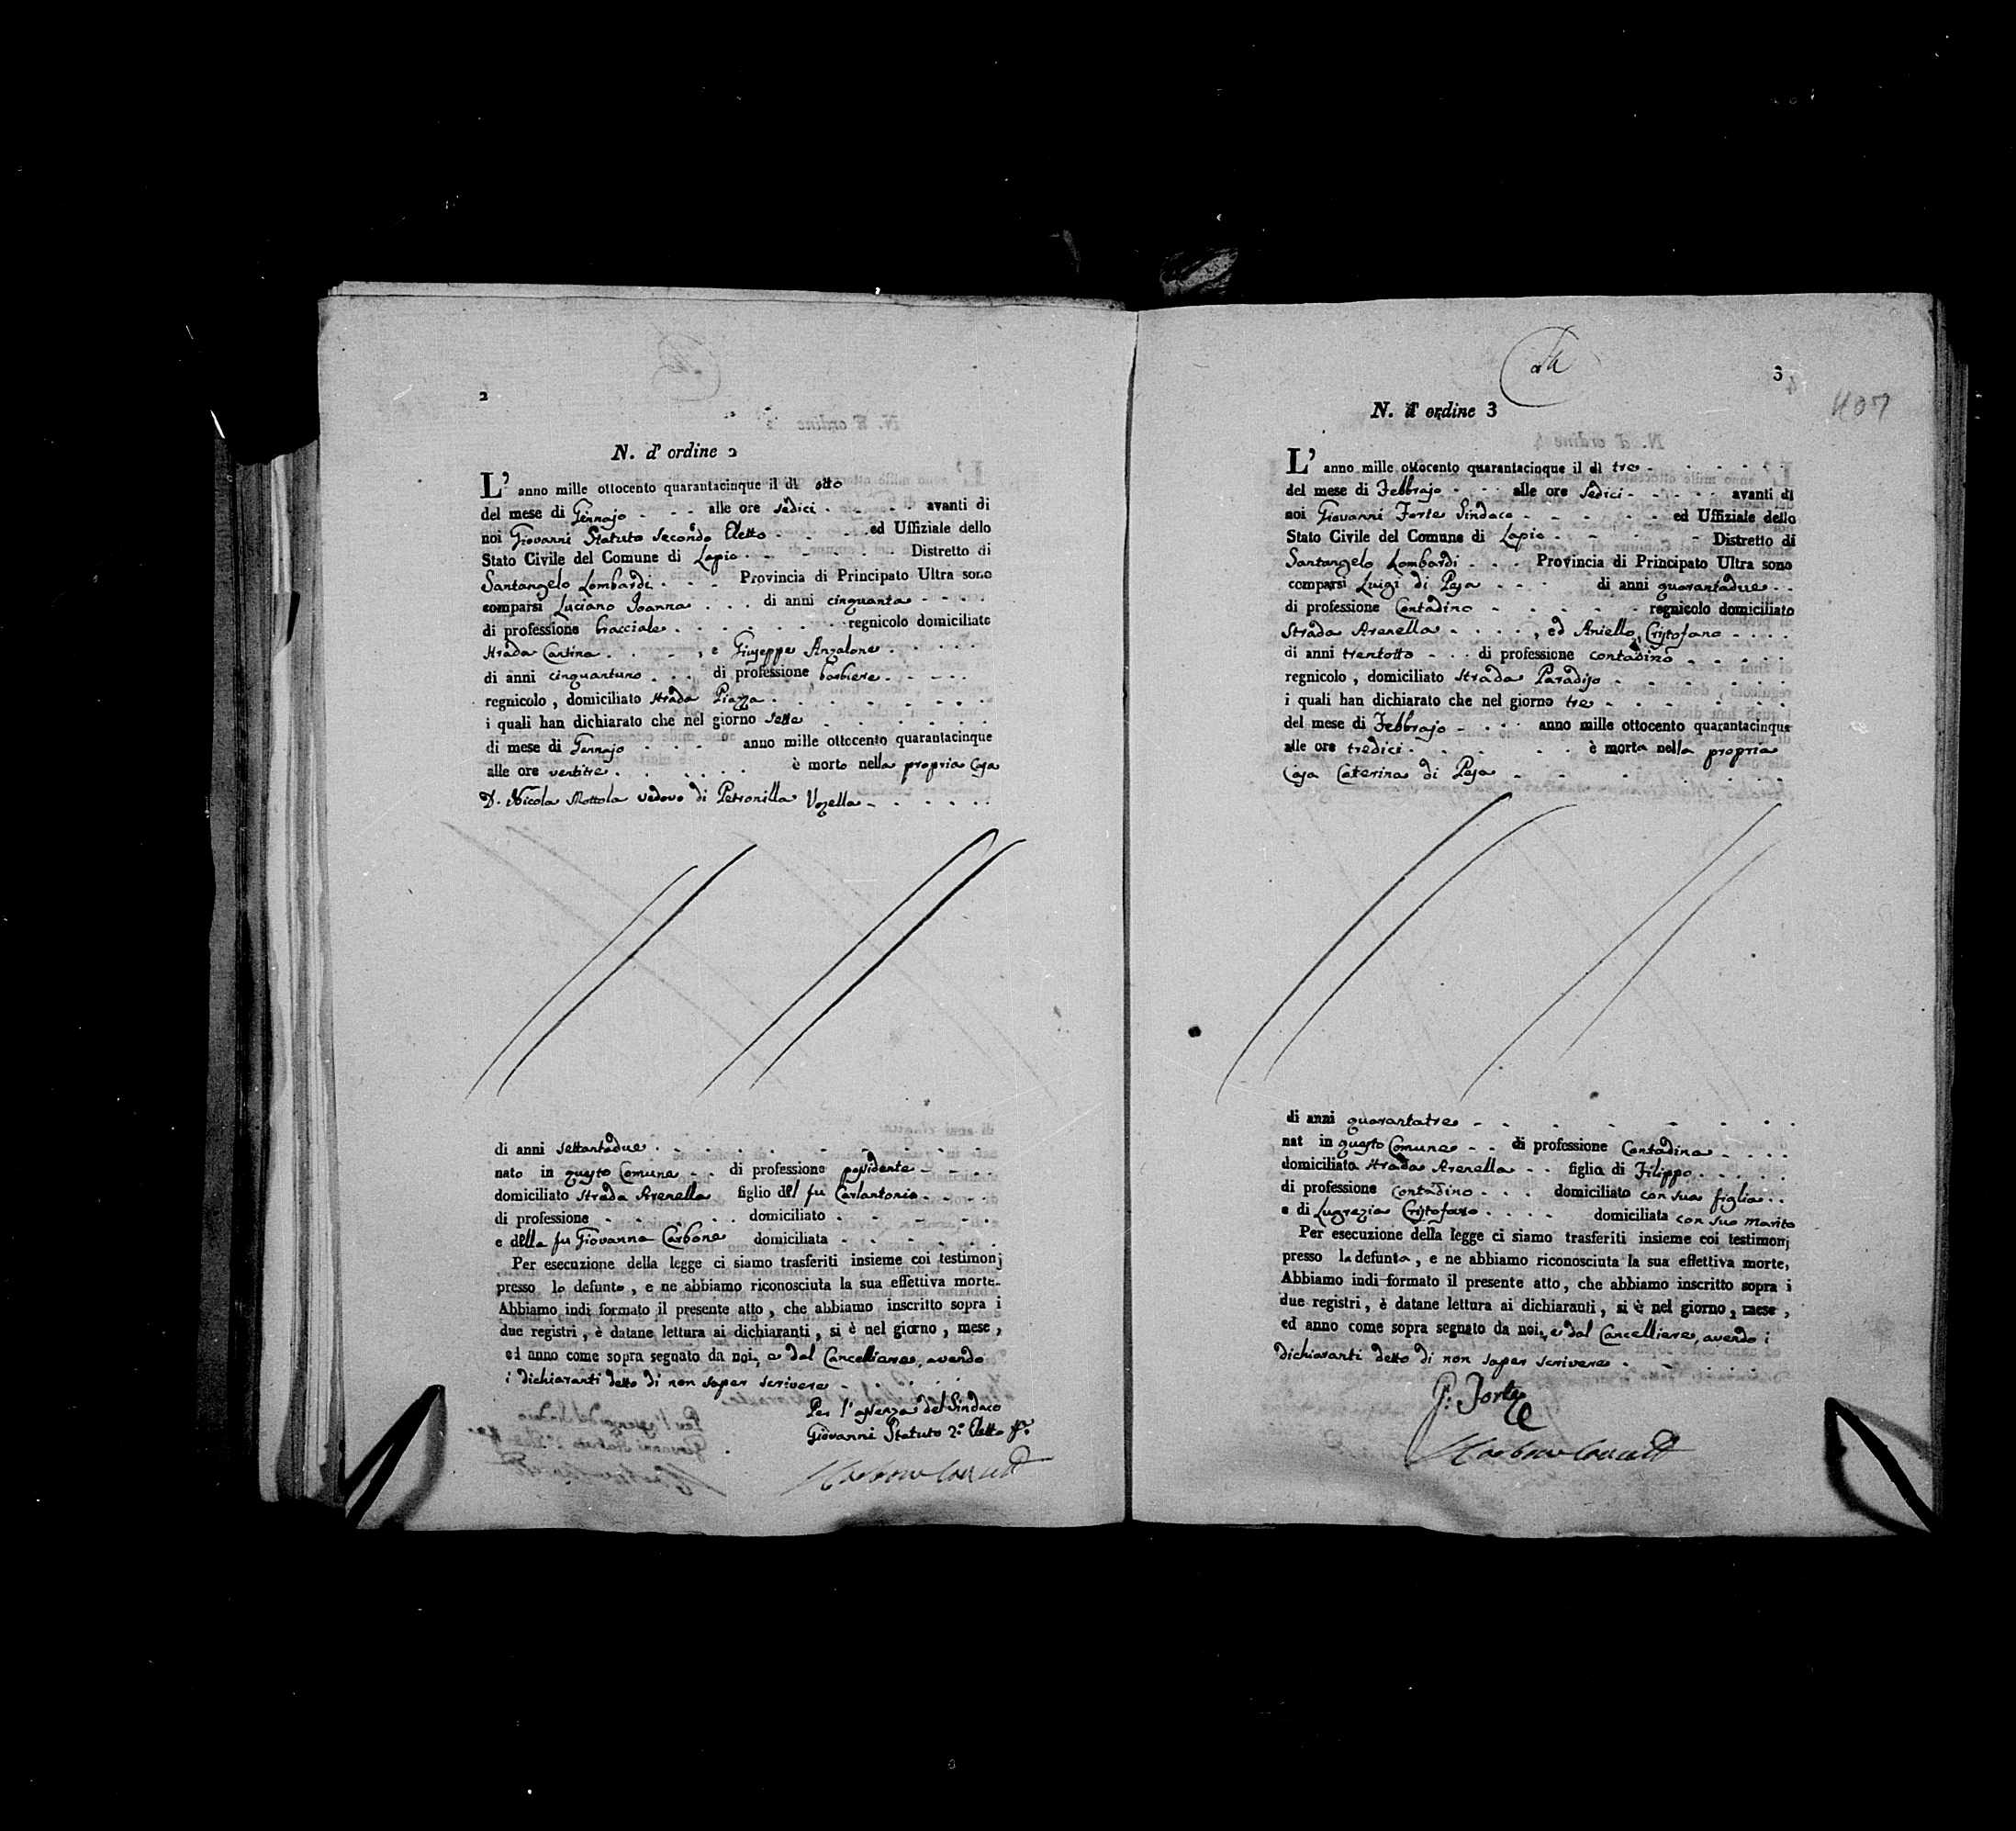 2
N. d' ordine 2
L' anno mille ottocento quarantacinque il dì otto
del mese di Gennajo - - - alle ore sedici - - - - avanti di
noi Giovanni Statuto secondo Eletto - - - - ed Uffiziale dello
Stato Civile del Comune di Lapio - - - - - - Distretto di
Santangelo Lombardi - - - Provincia di Principato Ultra sono
comparsi Luciano Joanna - - - di anni cinquanta - - - -
di professione bracciale - - - - - - regnicolo domiciliato
strada Cantina - - - - , e Giuseppe Anzalone - - - - -
di anni cinquantuno - - - di professione barbiere - - - -
regnicolo , domiciliato strada Piazza - - - - - - - -
i quali han dichiarato che nel giorno sette - - - - - -
di mese di Gennajo - - - - anno mille ottocento quarantacinque
alle ore ventitre - - - - - - è morto nella propria casa
D. Nicola Mottola vedovo di Petronilla Vozella - - - - - -
di anni settantadue - - - - - - - - -
nato in questo Comune - - di professione possidente - - - -
domiciliato strada Arenella figlio del fu Carlantonio - - - -
di professione - - - - - domiciliato - - - - - -
e della fu Giovanna Carbone domiciliata - - - - - -
Per esecuzione della legge ci siamo trasferiti insieme coi testimonj
presso lo defunto , e ne abbiamo riconosciuta la sua effettiva morte.
Abbiamo indi formato il presente atto , che abbiamo inscritto sopra i
due registri , è datane lettura ai dichiaranti , si è nel giorno , mese ,
ed anno come sopra segnato da noi, e dal Cancelliere, avendo
i dichiaranti detto di non saper scrivere - - - - -
Per l'assenza del Sindaco
Giovanni Statuto 2.º Eletto
3
407
N. d' ordine 3
L' anno mille ottocento quarantacinque il dì tre - - - - - -
del mese di Febbrajo - - - alle ore sedici - - - - - avanti di
noi Giovanni Forte Sindaco - - - - - - ed Uffiziale dello
Stato Civile del Comune di Lapio - - - - - - Distretto di
Santangelo Lombardi - - - Provincia di Principato Ultra sono
comparsi Luigi di Pesa - - - - di anni quarantadue - -
di professione Contadino - - - - - - regnicolo domiciliato
Strada Arenella - - - - , ed Aniello Cristofano - - - -
di anni trentotto - - - di professione contadino - - - - -
regnicolo , domiciliato Strada Paradiso - - - - - - -
i quali han dichiarato che nel giorno tre - - - - - - -
del mese di Febbrajo - - - - anno mille ottocento quarantacinque
alle ore tredici - - - - - - è morta nella propria
casa Caterina di Pesa - - - - - - -
di anni quarantatre - - - - - - - - -
nat in questo Comune - - di professione Contadina - - - -
domiciliata strada Arenella - - figlia di Filippo - - - - -
di professione contadino - - - domiciliato con sua figlia - -
e di Lugrezia Cristofaro - - - - domiciliata con suo marito
Per esecuzione della legge ci siamo trasferiti insieme coi testimonj
presso la defunta , e ne abbiamo riconosciuta la sua effettiva morte,
Abbiamo indi formato il presente atto , che abbiamo inscritto sopra i
due registri , è datane lettura ai dichiaranti , si è nel giorno , mese ,
ed anno come sopra segnato da noi, e dal Cancelliere, avendo i
dichiaranti detto di non saper scrivere - - - - -
G: Forte